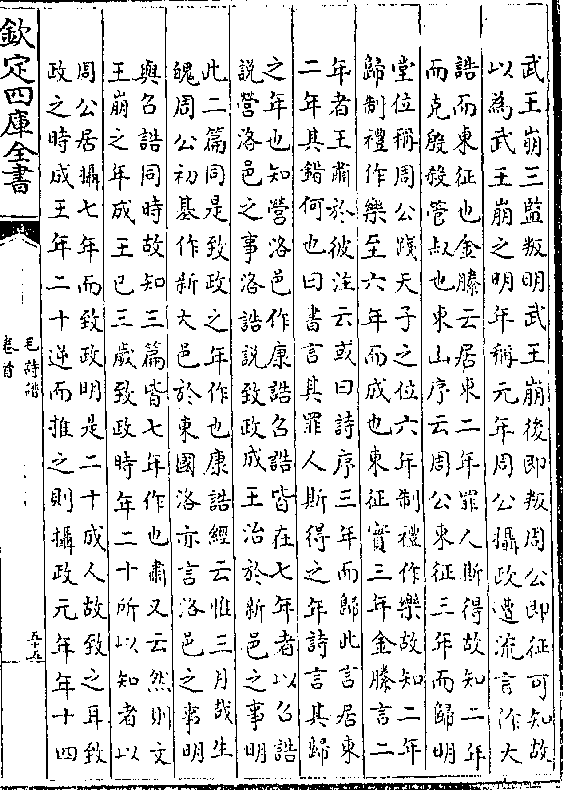 武王崩三監叛明武王崩後即叛周公即征可知故
以為武王崩之明年稱元年周公攝政遭流言作大
誥而東征也金縢云居東二年罪人斯得故知二年
而克殷殺管叔也東山序云周公東征三年而歸明
堂位稱周公踐天子之位六年制禮作樂故知二年
歸制禮作樂至六年而成也東征實三年金縢言二
年者王肅於彼注云或曰詩序三年而歸此言居東
二年其錯何也曰書言其罪人斯得之年詩言其歸
之年也知營洛邑作康誥召誥皆在七年者以召誥
說營洛邑之事洛誥說致政成王治於新邑之事明
此二篇同是致政之年作也康誥經云惟三月哉生
魄周公初基作新大邑於東國洛亦言洛邑之事明
與召誥同時故知三篇皆七年作也肅又云然則文
王崩之年成王已三歲致政時年二十所以知者以
周公居攝七年而致政明是二十成人故致之耳致
政之時成王年二十逆而推之則攝政元年年十四
欽定四庫全書
毛詩
卷首
五十五